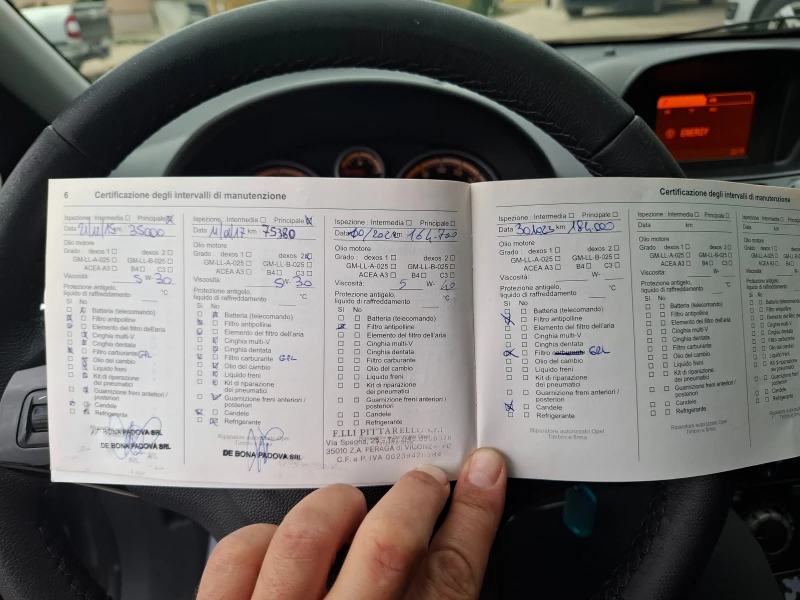 6 Certificazione degli intervalli di manutenzione
Ispezione: Intermedia Principale
Data km 35000
Olio motore
Grado dexos 1 dexos 2
GM-LL-A-025 GM-LL-B-025
ACEA A3 B4 C3
Viscosità 5 W- 30
Protezione antigelo,
liquido di raffreddamento °C
Sì No
Batteria (telecomando)
Filtro antipolline
Elemento del filtro dell'aria
Cinghia multi-V
Cinghia dentata
Filtro carburante GPL
Olio del cambio
Liquido freni
Kit di riparazione
dei pneumatici
Guarnizione freni anteriori /
posteriori
Candele
Refrigerante
DE BONA PADOVA SRL
DE BONA PADOVA SRL
Ispezione: Intermedia Principale
Data km 75380
Olio motore
Grado dexos 1 dexos 2
GM-LL-A-025 GM-LL-B-025
ACEA A3 B4 C3
Viscosità 5 W- 30
Protezione antigelo,
liquido di raffreddamento °C
Sì No
Batteria (telecomando)
Filtro antipolline
Elemento del filtro dell'aria
Cinghia multi-V
Cinghia dentata
Filtro carburante GPL
Olio del cambio
Liquido freni
Kit di riparazione
dei pneumatici
Guarnizione freni anteriori /
posteriori
Candele
Refrigerante
Riparatore autorizzato Opel
DE BONA PADOVA SRL
Ispezione: Intermedia Principale
Data km 164.700
Olio motore
Grado dexos 1 dexos 2
GM-LL-A-025 GM-LL-B-025
ACEA A3 B4 C3
Viscosità 5 W-
Protezione antigelo,
liquido di raffreddamento °C
Sì No
Batteria (telecomando)
Filtro antipolline
Elemento del filtro dell'aria
Cinghia multi-V
Cinghia dentata
Filtro carburante
Olio del cambio
Liquido freni
Kit di riparazione
dei pneumatici
Guarnizione freni anteriori /
posteriori
Candele
Refrigerante
F.LLI PITTARELLO
Via Spagna,
35010 Z.A. PERAGA di VIGONZA
C.F. e P. IVA
Certificazione degli intervalli di manutenzione
Ispezione: Intermedia Principale
Data km 184.000
Olio motore
Grado dexos 1 dexos 2
GM-LL-A-025 GM-LL-B-025
ACEA A3 B4 C3
Viscosità W-
Protezione antigelo,
liquido di raffreddamento °C
Sì No
Batteria (telecomando)
Filtro antipolline
Elemento del filtro dell'aria
Cinghia multi-V
Cinghia dentata
Filtro GPL
Olio del cambio
Liquido freni
Kit di riparazione
dei pneumatici
Guarnizione freni anteriori /
posteriori
Candele
Refrigerante
Riparatore autorizzato Opel
Timbro e firma
Ispezione: Intermedia Principale
Data km
Olio motore
Grado dexos 1 dexos 2
GM-LL-A-025 GM-LL-B-025
ACEA A3 B4 C3
Viscosità W-
Protezione antigelo,
liquido di raffreddamento °C
Sì No
Batteria (telecomando)
Filtro antipolline
Elemento del filtro dell'aria
Cinghia multi-V
Cinghia dentata
Filtro carburante
Olio del cambio
Liquido freni
Kit di riparazione
dei pneumatici
Guarnizione freni anteriori /
posteriori
Candele
Refrigerante
Riparatore autorizzato Opel
Timbro e firma
ENERGY